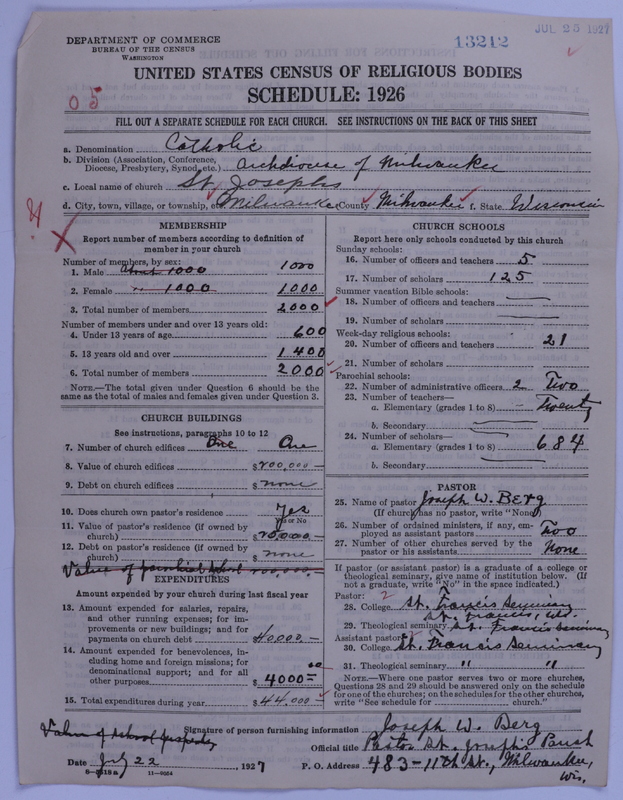 JUL 25 1927
DEPARTMENT OF COMMERCE
BUREAU OF THE CENSUS
WASHINGTON
13212
UNITED STATES CENSUS OF RELIGIOUS BODIES
SCHEDULE: 1926
05
FILL OUT A SEPARATE SCHEDULE FOR EACH CHURCH. SEE INSTRUCTIONS ON THE BACK OF THIS SHEET
a. Denomination Catholic
b. Division (Association, Conference, Diocese, Presbytery, Synod, etc.) Archdiocese of Milwaukee
c. Local name of church St. Josephs
d. City, town, village, or township, etc. Milwaukee County Milwaukee f. State Wisconsin
MEMBERSHIP
Report number of members according to definition of
member in your church
Number of members, by sex:
1. Male about 1000 1000
2. Female " 1000 1000
3. Total number of members 2000
Number of members under and over 13 years old:
4. Under 13 years of age 600
5. 13 years old and over 1400
6. Total number of members 2000
NOTE.—The total given under Question 6 should be the
same as the total of males and females given under Question 3.
CHURCH BUILDINGS
See instructions, paragraphs 10 to 12
7. Number of church edifices One One
8. Value of church edifices $200,000—
9. Debt on church edifices $ none
10. Does church own pastor's residence Yes
Yes or No
11. Value of pastor's residence (if owned by
church) $20,000—
12. Debt on pastor's residence (if owned by
church) $ none
Value of parochial school
EXPENDITURES
Amount expended by your church during last fiscal year
13. Amount expended for salaries, repairs,
and other running expenses; for im-
provements or new buildings; and for
payments on church debt $40000.—
14. Amount expended for benevolences, in-
cluding home and foreign missions; for
denominational support; and for all
other purposes $4000—
15. Total expenditures during year $44,000—
CHURCH SCHOOLS
Report here only schools conducted by this church
Sunday schools:
16. Number of officers and teachers 5
17. Number of scholars 125
Summer vacation Bible schools:
18. Number of officers and teachers
19. Number of scholars
Week-day religious schools:
20. Number of officers and teachers 21
21. Number of scholars
Parochial schools:
22. Number of administrative officers 2 Two
23. Number of teachers—
a. Elementary (grades 1 to 8) Twenty
b. Secondary
24. Number of scholars—
a. Elementary (grades 1 to 8) 684
b. Secondary
PASTOR
25. Name of pastor Joseph W. Berg
(If church has no pastor, write "None")
26. Number of ordained ministers, if any, em-
ployed as assistant pastors Two
27. Number of other churches served by the
pastor or his assistants None
If pastor (or assistant pastor) is a graduate of a college or
theological seminary, give name of institution below. (If
not a graduate, write "No" in the space indicated.)
Pastor: 2
28. College St. Francis Seminary
St. Francis, Wis.
29. Theological seminary St. Francis Seminary
Assistant pastor:
30. College St. Francis Seminary
31. Theological seminary " "
NOTE.—Where one pastor serves two or more churches,
Questions 28 and 29 should be answered only on the schedule
for one of the churches; on the schedules for the other churches,
write "See schedule for church."
Value of school property
Signature of person furnishing information Joseph W. Berg
Official title Pastor St. Joseph's Parish
Date July 22, 1927 P. O. Address 483-11th St., Milwaukee,
Wis.
8-318a 11-9564